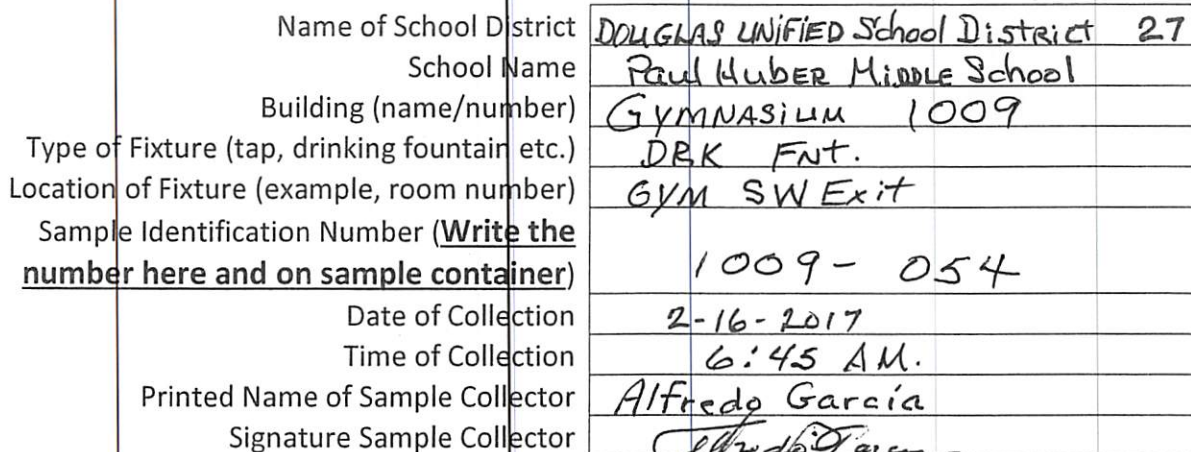 Name of School District DOUGLAS UNiFiED School District 27
School Name Paul Huber Middle School
Building (name/number) GYMNASiUM 1009
Type of Fixture (tap, drinking fountain etc.) DRK FNt.
Location of Fixture (example, room number) GYM SW Exit
Sample Identification Number (Write the
number here and on sample container) 1009- 054
Date of Collection 2-16-2017
Time of Collection 6:45 AM.
Printed Name of Sample Collector Alfredo Garcia
Signature Sample Collector